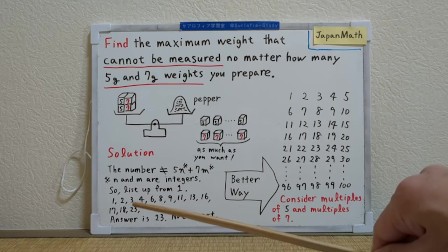 JapanMath
Find the maximum weight that
cannot be measured no matter how many
5g and 7g weights you prepare.
pepper
as much as
you want!
Solution
The number ≠ 5n*+7m*
※ n and m are integers.
So, list up from 1.
1, 2, 3, 4, 6, 8, 9, 11, 13, 16,
17, 18, 23,
Answer is 23.
Better
Way
1 2 3 4 5
6 7 8 9 10
11 12 13 14 15
16 17 18 19 20
21 22 23 24 25
26 27 28 29 30
96 97 98 99 100
Consider multiples
of 5 and multiples
of 7.